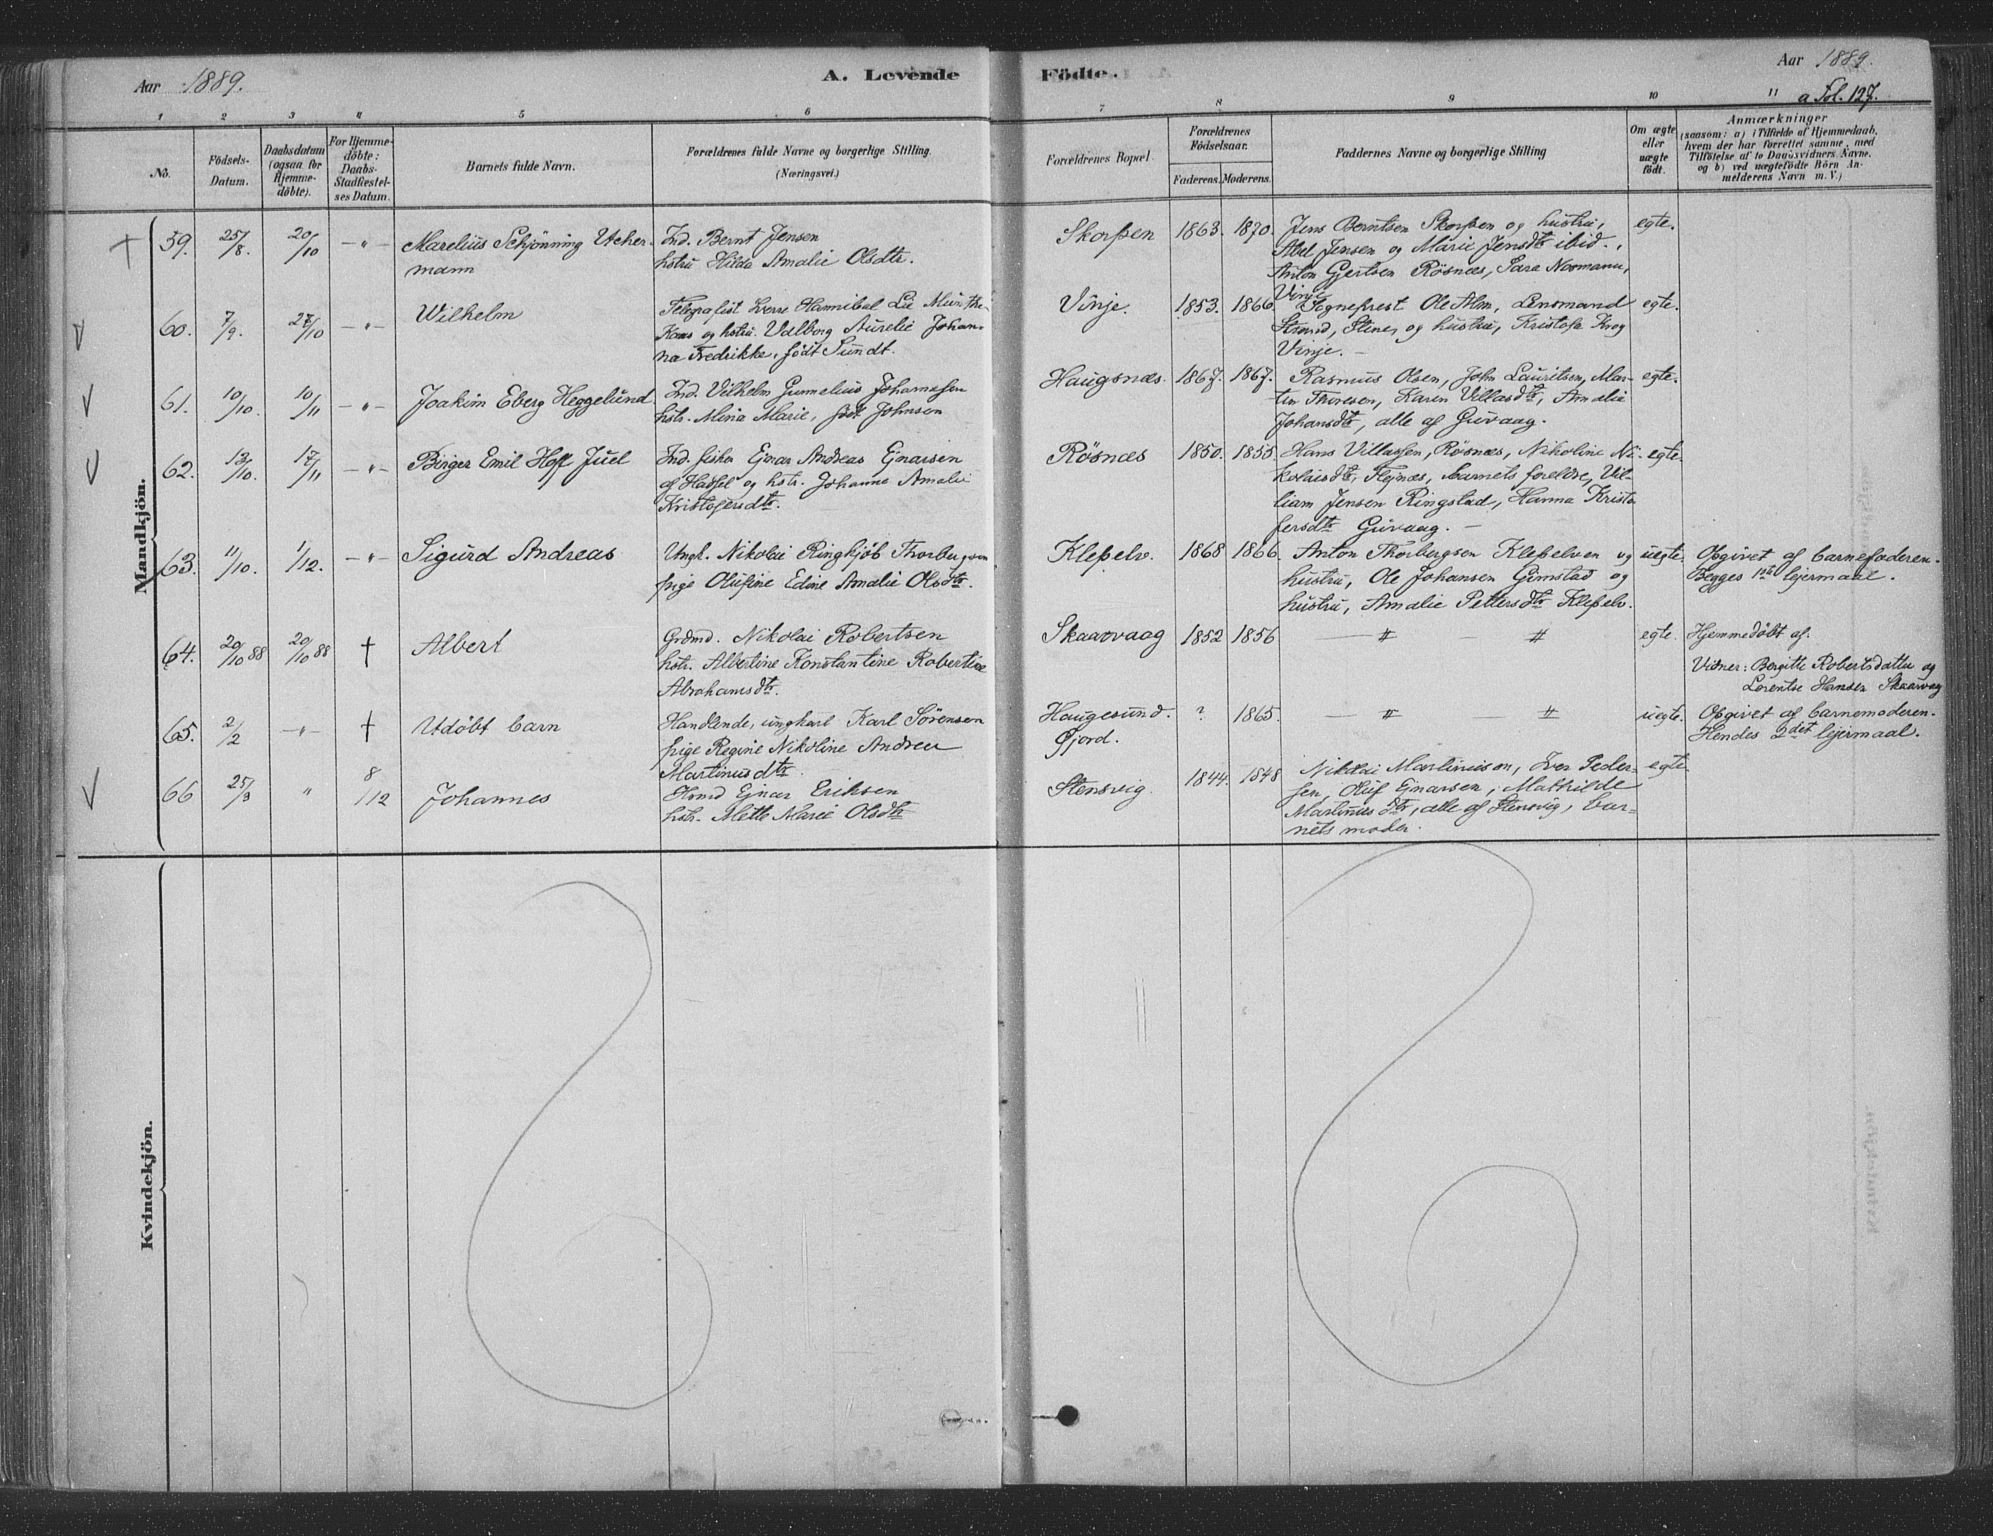 Aar 1889.
A. Levende
Födte.
Aar 1889.
a Fol. 127.
1 2 3 4 5 6 7 8 9 10 11
No.
Födsels-
Datum.
Daabsdatum
(ogsaa for
Hjemme-
döbte).
For Hjemme-
döbte:
Daabs-
Stadfæstel-
ses Datum.
Barnets fulde Navn.
Forældrenes fulde Navne og borgerlige Stilling
(Næringsvei.)
Forældrenes Bopæl.
Forældrenes
Födselsaar.
Faderens. Moderens.
Faddernes Navne og borgerlige Stilling
Om ægte
eller
uægte
födt.
Anmærkninger
(saasom: a) i Tilfælde af Hjemmedaab,
hvem der har forrettet samme, med
Tilföielse af to Daabsvidners Navne,
og b) ved uægtefödte Börn An-
melderens Navn m. V.)
Mandkjön.
59. 25/8. 20/10 -"- Marelius Schjönning Ucher-
mann
Ind. Bernt Jensen
hstru Hilda Amalie Olsdtr.
Skorpen 1863. 1870.
Jens Berntsen Skorpen og hustru,
Abel Jensen og Marie Jensdtr ibid.,
Anton Gertsen Rösnæs, Sara Normann,
Vinje
egte.
60. 7/9. 27/10 -"- Wilhelm
Telegrafist Hannibal Lie Munthe-
Kaas og hstru Valborg Aurelie Johan-
na Fredrikke, födt Sundt.
Vinje. 1853. 1866
Sogneprest Ole Alm, Lensmand
Strand, Stene, og hustru, Kristofa Krog
Vinje. -
egte.
61. 10/10. 10/11 -"- Joakim Eberg Heggelund
Ind. Vilhelm Gunnelius Johannesen
hstr. Mina Marie, födt Johnsen
Haugsnæs. 1867. 1867.
Rasmus Olsen, John Lauritsen, Mar-
tin Thoresen, Karen Villasdtr, Amalie
Johansdtr, alle af Guvaag.
egte.
62. 13/10. 17/11 -"- Birger Emil Hoff Juel
Ind. fisker Ejnar Andreas Ejnarsen
af Hadsel og hstr. Johanne Amalie
Kristofersdtr.
Rösnæs 1850. 1855.
Hans Villassen, Rösnæs, Nikoline Ni-
kolaisdtr, Flejnæs, barnets foreldre, Vil-
liam Jensen Ringstad, Hanna Kristo
fersdtr Guvaag. -
egte.
63. 11/10. 1/12. -"- Sigurd Andreas
Ungk. Nikolai Ringkjöb Thorbergsen
pige Olufine Edine Amalie Olsdtr.
Klepelv. 1868 1866.
Anton Thorbergsen Klepelven og
hustru, Ole Johansen Gimstad og
hustru, Amalie Pettersdtr Klepelv.
uegte. Opgivet af barnefaderen.
Begges 1ste lejermaal.
64. 20/10 88 20/10 88 † Albert
Grdmd. Nikolai Robertsen
hstr. Albertine Konstantine Robertine
Abrahamsdtr.
Skaarvaag 1852 1856 — " — "
egte. Hjemmedöbt af.
Vidner: Bergitte Robertsdatter og
Lorentse Hansen Skaarvag
65. 2/2 -"- † Udöbt barn
Handlende, ungkarl Karl Sörensen
pige Regine Nikoline Andrea
Martinusdtr.
Haugesund.
Fjord.
? 1865. — " — "
uegte. Opgivet af barnemoderen.
Hendes 2det lejermaal.
66 25/3 " 8/12 Johannes
Ejnar Eriksen
hstr. Mette Marie Olsdtr
Stensvig. 1844. 1848
Nikolai Martinusson, Iver Peder-
sen, Oluf Ejnarsen, Mathilde
Martinusdtr, alle af Stensvig, bar-
nets moder.
egte
Kvindekjön.